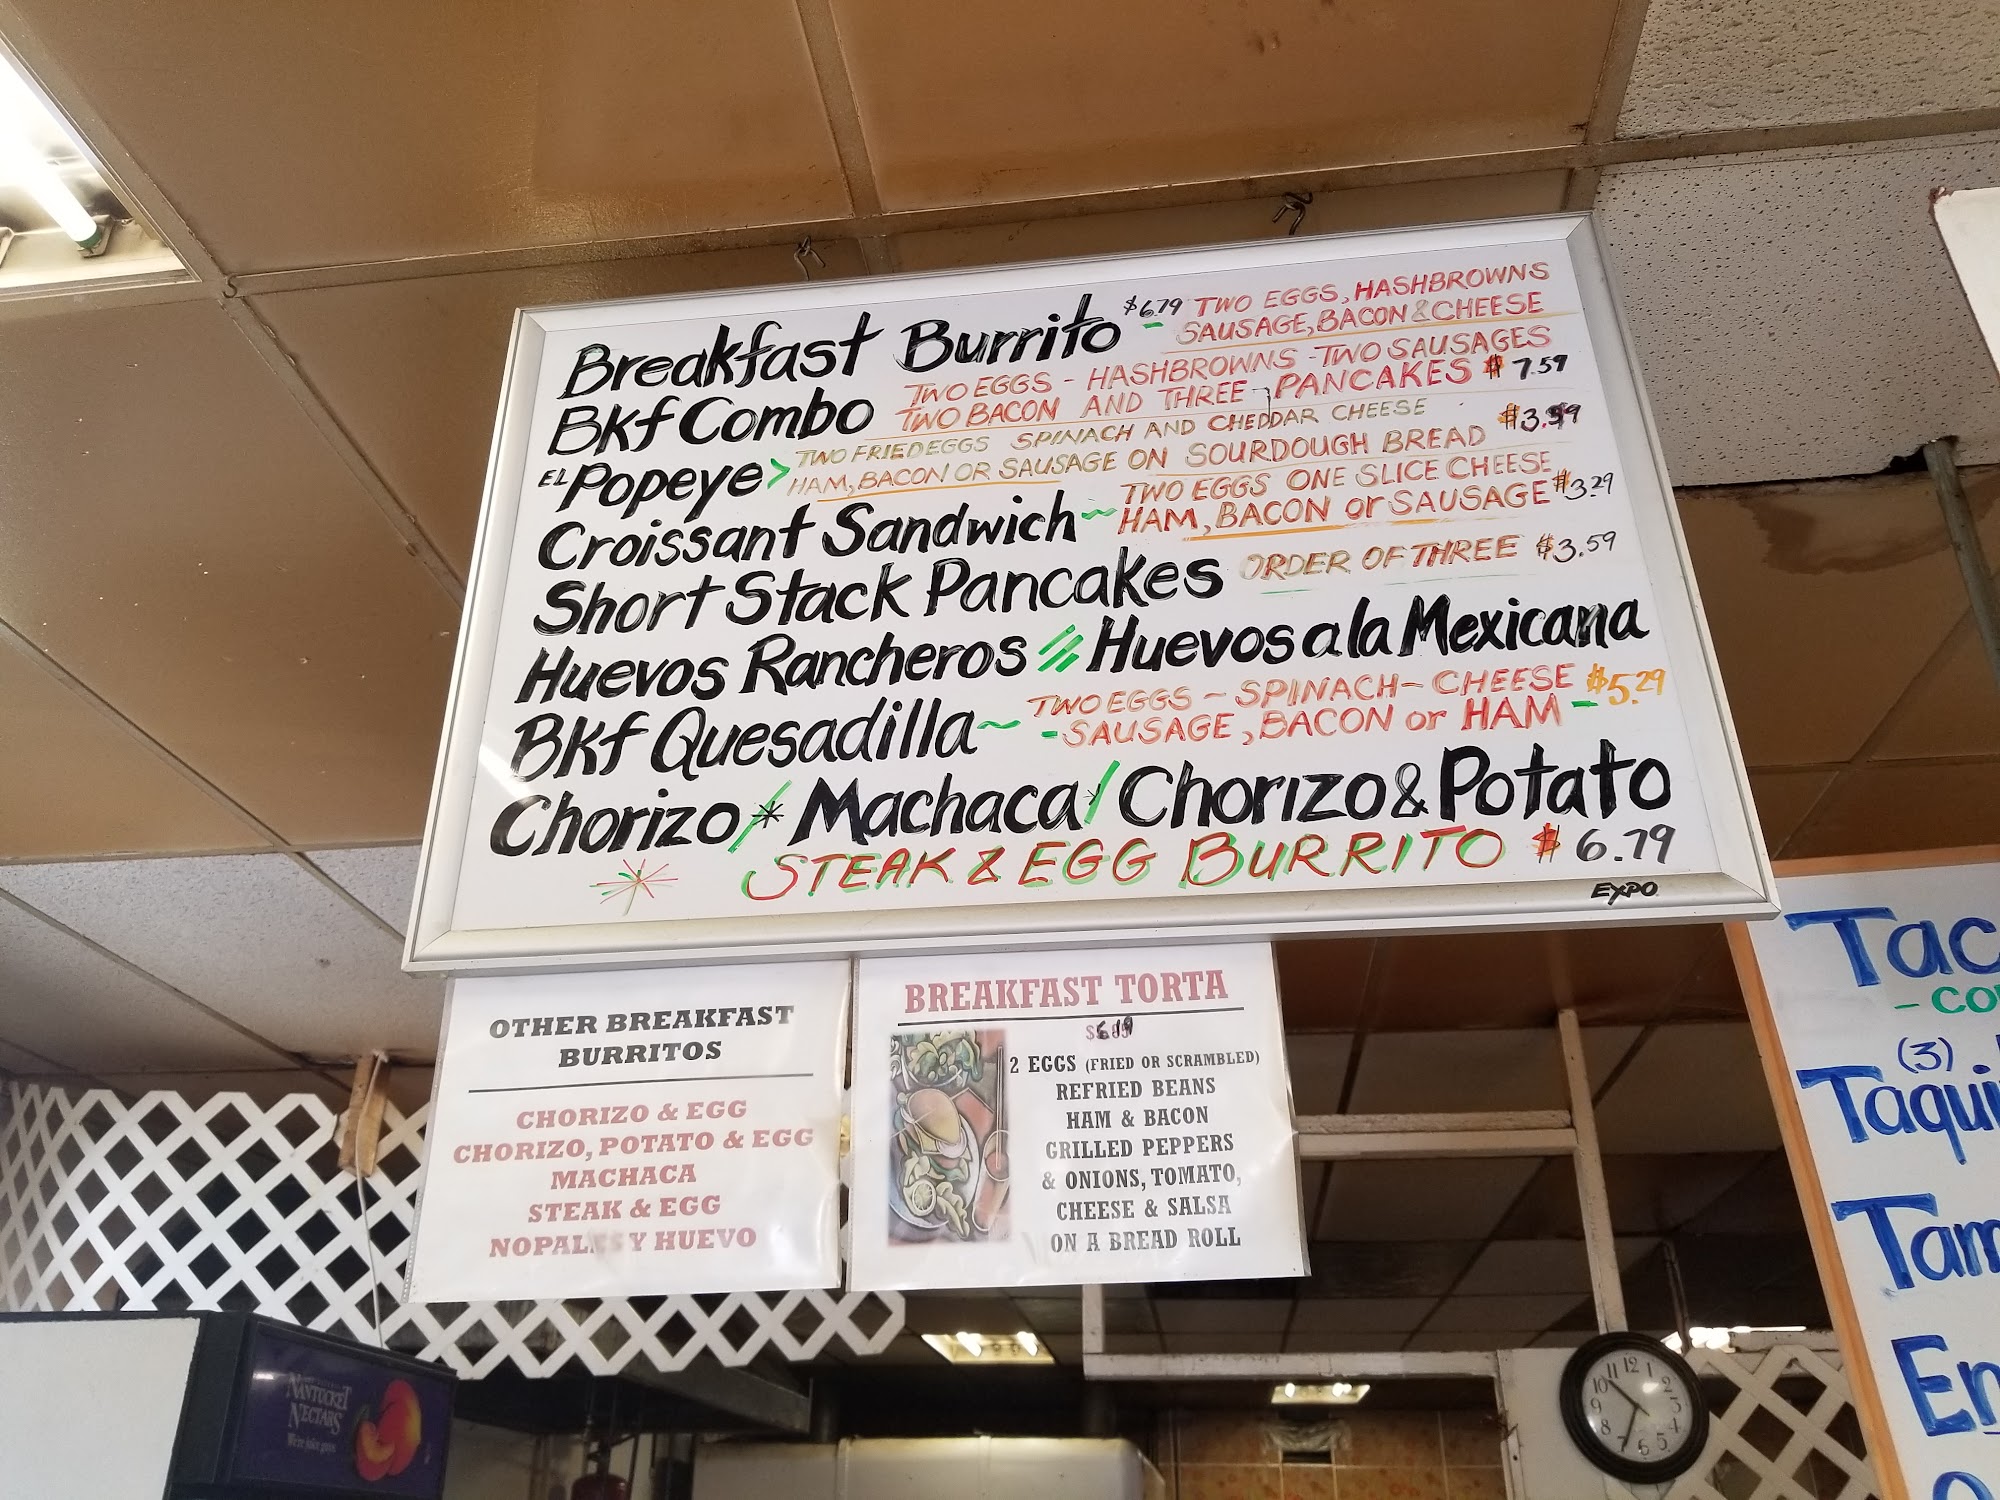 Breakfast Burrito $6.79 - TWO EGGS, HASHBROWNS
SAUSAGE, BACON & CHEESE
BKf Combo TWO EGGS - HASHBROWNS - TWO SAUSAGES
TWO BACON AND THREE PANCAKES $7.59
EL Popeye > TWO FRIED EGGS SPINACH AND CHEDDAR CHEESE
HAM, BACON OR SAUSAGE ON SOURDOUGH BREAD
Croissant Sandwich ~ TWO EGGS ONE SLICE CHEESE
HAM, BACON or SAUSAGE $3.29
Short Stack Pancakes ORDER OF THREE $3.59
Huevos Rancheros // Huevos a la Mexicana
BKf Quesadilla ~ TWO EGGS - SPINACH - CHEESE $5.29
- SAUSAGE, BACON or HAM -
Chorizo / * Machaca / Chorizo & Potato
* STEAK & EGG BURRITO $6.79
EXPO
OTHER BREAKFAST
BURRITOS
CHORIZO & EGG
CHORIZO, POTATO & EGG
MACHACA
STEAK & EGG
NOPALES Y HUEVO
BREAKFAST TORTA
2 EGGS (FRIED OR SCRAMBLED)
REFRIED BEANS
HAM & BACON
GRILLED PEPPERS
& ONIONS, TOMATO,
CHEESE & SALSA
ON A BREAD ROLL
Tac
- CO
(3)
Taqui
Tam
En
NANTUCKET
NECTARS
We're juice guys.
12 1 2 3 4 5 6 7 8 9 10 11